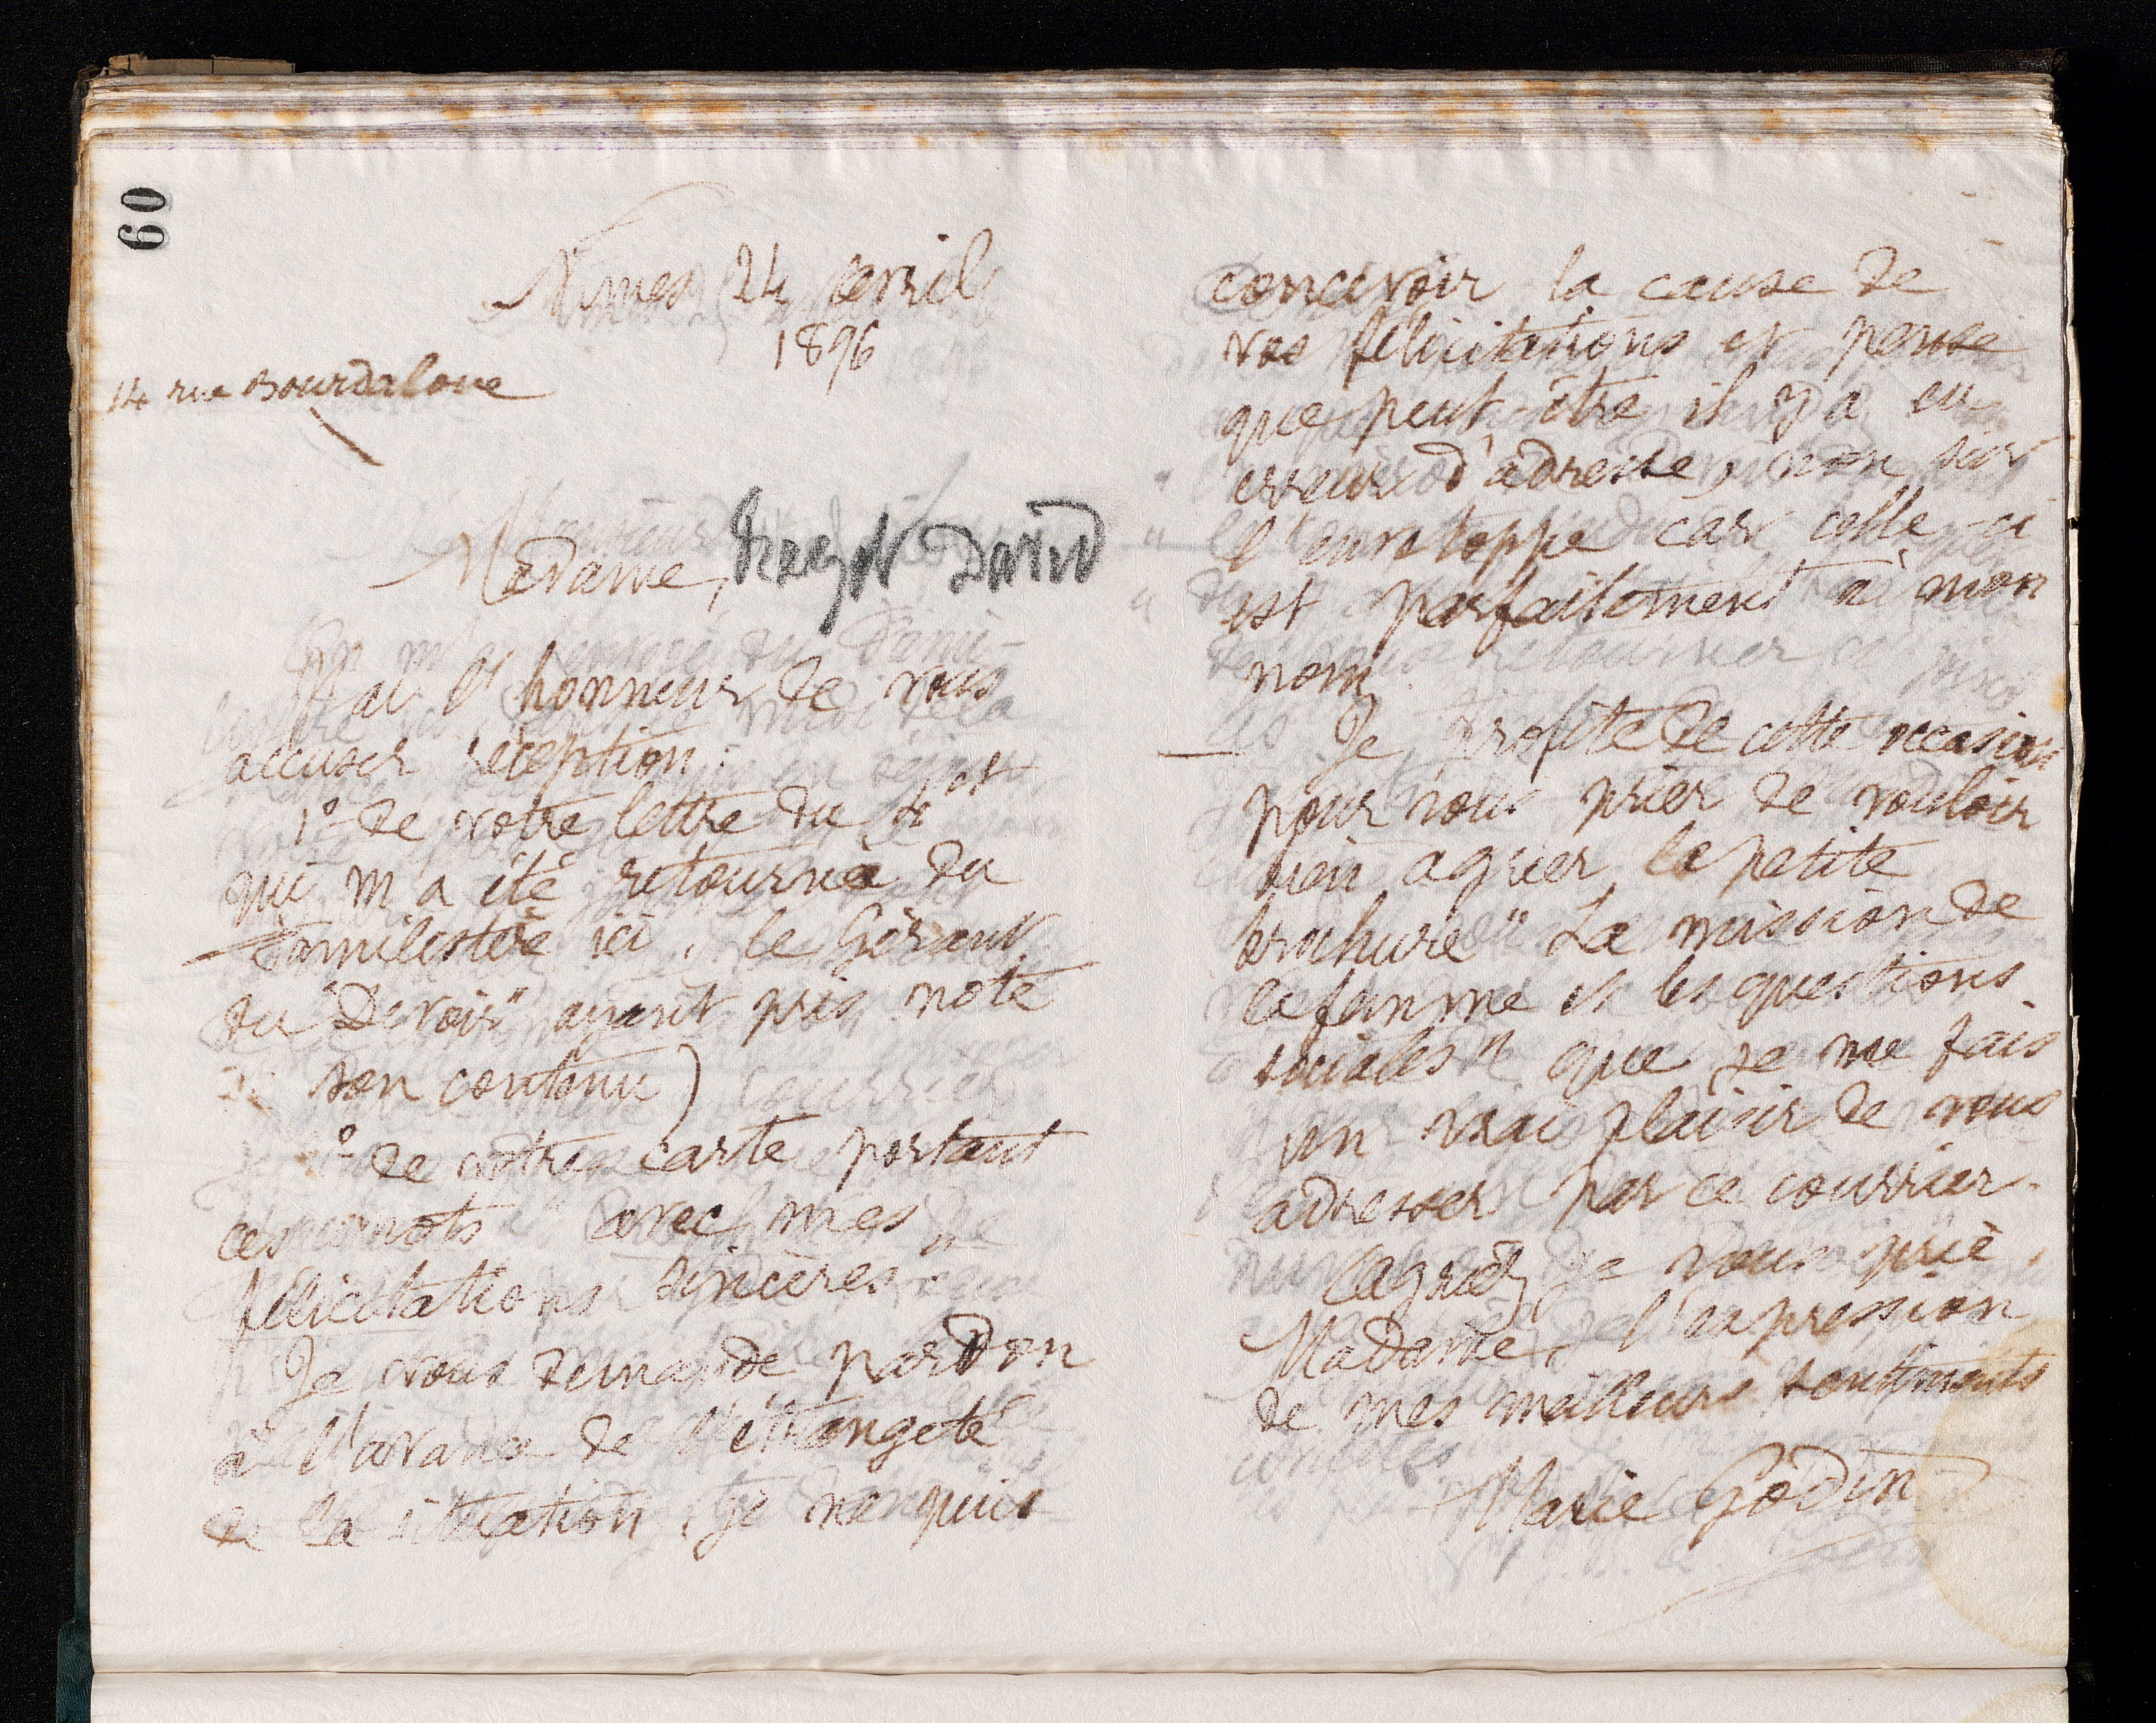 60
Nimes 24 avril
1896
14 rue Bourdaloue
Madame, David
J'ai l'honneur de vous
accuser réception :
1° de votre lettre du 4 ct
qui m'a été retournée du
Familistère ici, le Gérant
du "Devoir" ayant pris note
de son contenu)
2° de votre carte portant
ces mots " avec mes
félicitations sincères "
Je vous demande pardon
à l'avance de l'étrangeté
de la situation, je ne puis
concevoir la cause de
vos félicitations et pense
que peut-être il y a eu
erreur d'adresse, non sur
l'enveloppe car celle-ci
est parfaitement à mon
nom.
Je profite de cette occasion
pour vous prier de vouloir
bien agréer la petite
brochure " La mission de
la femme et les questions
sociales " que je me fais
un vrai plaisir de vous
adresser par ce courrier.
Agréez, je vous prie,
Madame, l'expression
de mes meilleurs sentiments
Marie Godin